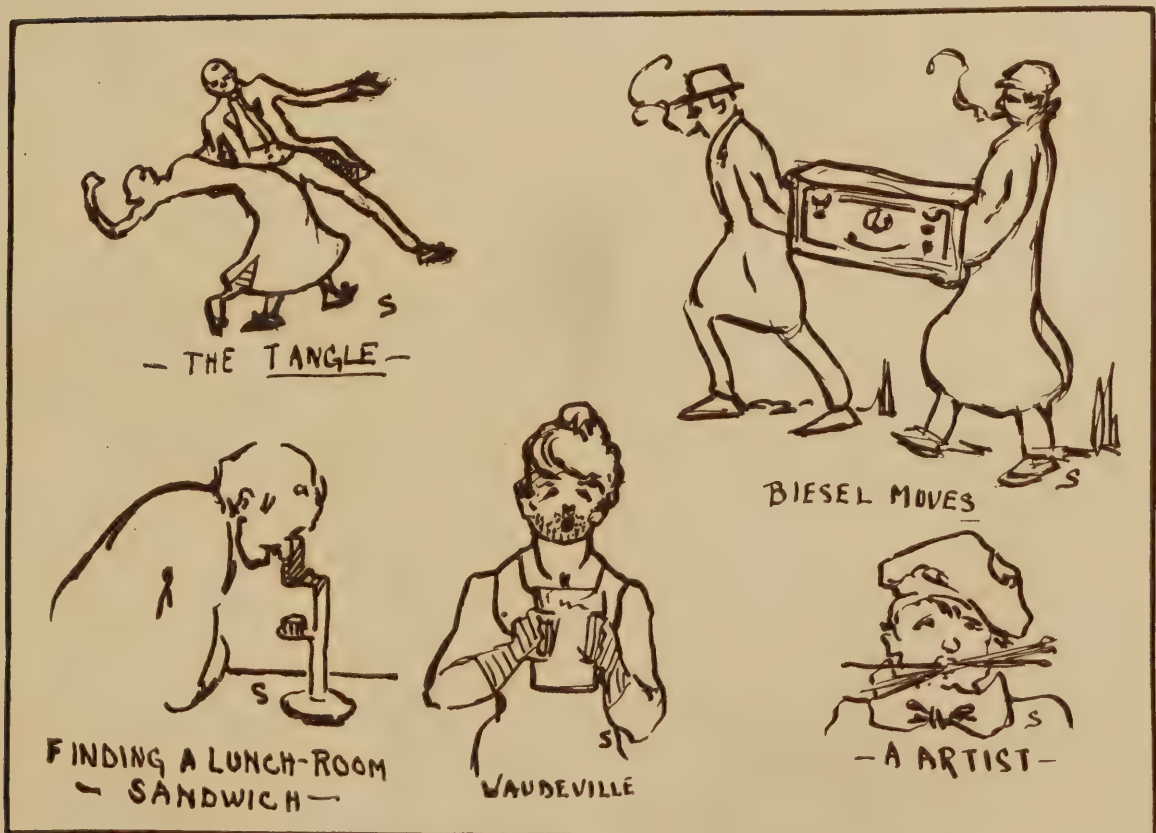 S
— THE TANGLE —
S
BIESEL MOVES
S
FINDING A LUNCH-ROOM
— SANDWICH —
S
VAUDEVILLE
S
— A ARTIST —